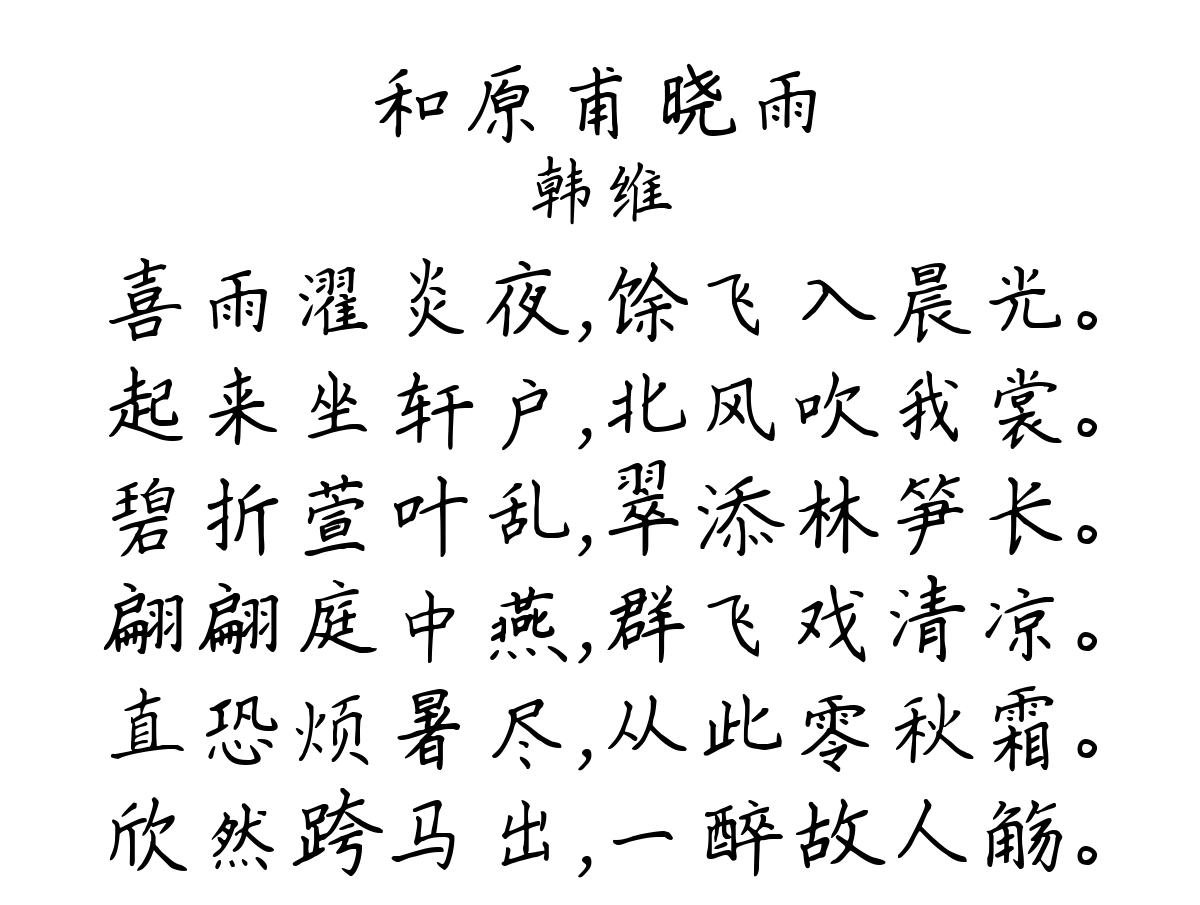 和原甫晓雨
韩维
喜雨濯炎夜,馀飞入晨光。
起来坐轩户,北风吹我裳。
碧折萱叶乱,翠添林笋长。
翩翩庭中燕,群飞戏清凉。
直恐烦暑尽,从此零秋霜。
欣然跨马出,一醉故人觞。